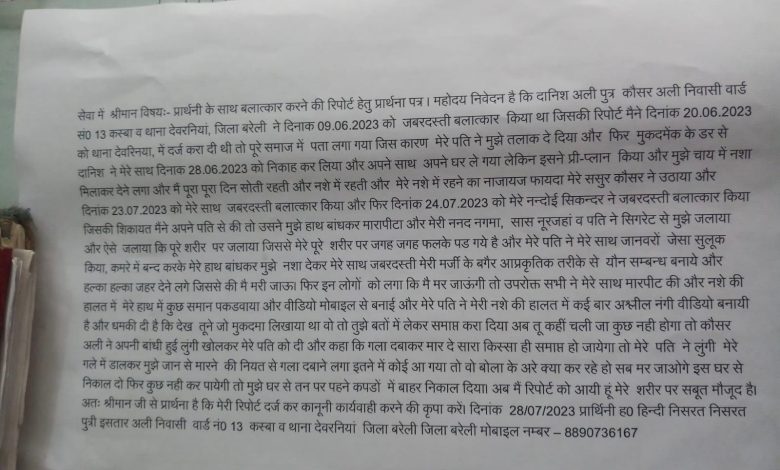 सेवा में श्रीमान विषयः- प्रार्थनी के साथ बलात्कार करने की रिपोर्ट हेतु प्रार्थना पत्र। महोदय निवेदन है कि दानिश अली पुत्र कौसर अली निवासी वार्ड
सं0 13 कस्बा व थाना देवरनियां, जिला बरेली ने दिनाक 09.06.2023 को जबरदस्ती बलात्कार किया था जिसकी रिपोर्ट मैने दिनांक 20.06.2023
को थाना देवरिनया, में दर्ज करा दी थी तो पूरे समाज में पता लगा गया जिस कारण मेरे पति ने मुझे तलाक दे दिया और फिर मुकदमेंक के डर से
दानिश ने मेरे साथ दिनाक 28.06.2023 को निकाह कर लिया और अपने साथ अपने घर ले गया लेकिन इसने प्री-प्लान किया और मुझे चाय में नशा
मिलाकर देने लगा और मैं पूरा पूरा दिन सोती रहती और नशे में रहती और मेरे नशे में रहने का नाजायज फायदा मेरे ससुर कौसर ने उठाया और
दिनांक 23.07.2023 को मेरे साथ जबरदस्ती बलात्कार किया और फिर दिनांक 24.07.2023 को मेरे नन्दोई सिकन्दर ने जबरदस्ती बलात्कार किया
जिसकी शिकायत मैंने अपने पति से की तो उसने मुझे हाथ बांधकर मारापीटा और मेरी ननद नगमा, सास नूरजहां व पति ने सिगरेट से मुझे जलाया
और ऐसे जलाया कि पूरे शरीर पर जलाया जिससे मेरे पूरे शरीर पर जगह जगह फलके पड गये है और मेरे पति ने मेरे साथ जानवरों जेसा सुलूक
किया, कमरे में बन्द करके मेरे हाथ बांधकर मुझे नशा देकर मेरे साथ जबरदस्ती मेरी मर्जी के बगैर आप्रकृतिक तरीके से यौन सम्बन्ध बनाये और
हल्का हल्का जहर देने लगे जिससे की मै मरी जाऊ। फिर इन लोगों को लगा कि मै मर जाऊंगी तो उपरोक्त सभी ने मेरे साथ मारपीट की और नशे की
हालत में मेरे हाथ में कुछ समान पकडवाया और वीडियो मोबाइल से बनाई और मेरे पति ने मेरी नशे की हालत में कई बार अश्लील नंगी वीडियो बनायी
है और धमकी दी है कि देख तूने जो मुकदमा लिखाया था वो तो तुझे बतों में लेकर समाप्त करा दिया अब तू कहीं चली जा कुछ नही होगा तो कौसर
अली ने अपनी बांधी हुई लुंगी खोलकर मेरे पति को दी और कहा कि गला दबाकर मार दे सारा किस्सा ही समाप्त हो जायेगा तो मेरे पति ने लुंगी मेरे
गले में डालकर मुझे जान से मारने की नियत से गला दबाने लगा इतने में कोई आ गया तो वो बोला के अरे क्या कर रहे हो सब मर जाओगे इस घर से
निकाल दो फिर कुछ नही कर पायेगी तो मुझे घर से तन पर पहने कपडों में बाहर निकाल दिया। अब मैं रिपोर्ट को आयी हूं मेरे शरीर पर सबूत मौजूद है।
अतः श्रीमान जी से प्रार्थना है कि मेरी रिपोर्ट दर्ज कर कानूनी कार्यवाही करने की कृपा करे। दिनांक 28/07/2023 प्रार्थिनी ह0 हिन्दी निसरत निसरत
पुत्री इसतार अली निवासी वार्ड नं0 13 कस्बा व थाना देवरनियां जिला बरेली जिला बरेली मोबाइल नम्बर – 8890736167